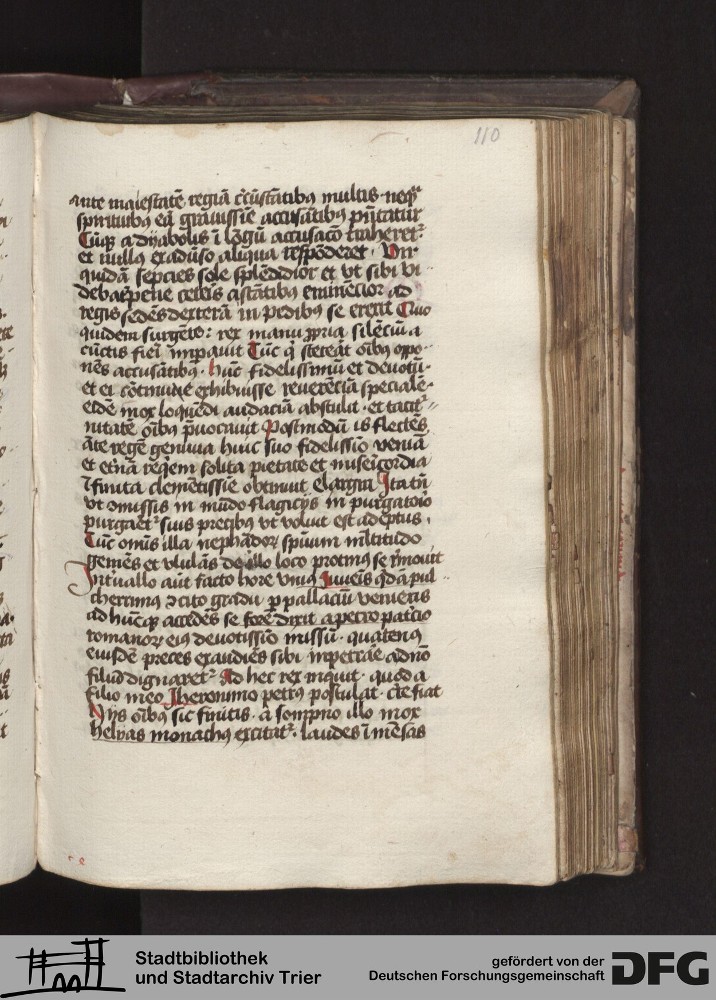 110
ante maiestatē regiā cc̄ūstātibꝯ multis · neqꝫ
spiritubꝯ eā grauissīe accusātibꝯ pn̄tatur
Cūqꝫ a dyabolis ī lōgū accusacō traheretꝛ
et nullꝯ exaduso aliqua respōderet · Vir
quidā sepcies sole splēdidior et vt sibi vi
debat pene ceteis astātibꝯ eminēcior ad
regis sedēs dexterā in pedibꝯ se erexit Cuio
quidem surgēte : rex manu ꝓpria silēciū a
cūctis fieri imꝑauit Tūc qͥ steterāt oībꝯ oppo
nēs accusātibꝯ · hūc fidelissimū et deuotū ·
et ei cōtinue exhibuisse reuerēciā specialē ·
eidē mox loquēdi audaciā abstulit · et tacitꝛ
nitatē oībꝯ puocauit Postmodū is flectēs
āte regē genua huic suo fidelissio veniā
et etnā reqͥem solita pietate et misericordia
īfinita clemētissie obtinuit elargiri Ita tn̄
vt ꝯmissis in mūdo flagicijs in purgatoio
purgaetꝛ suis precibꝯ vt voluit est adeptus ·
Tūc omīs illa nephādoꝝ spūum ml̄titudo
gemēs et vlulās de illo loco protinꝯ se rͥmouit
Intuallo aūt facto hore vniꝯ iuueis qͥdā pul
cherrimꝯ ꝯcito gradu ꝑ pallaciū venieris
ad hūcqꝫ accedēs se fore dixit a petro pat̄cio
romanoꝝ eiꝯ deuotissio missū · quatenꝯ
eiusdē preces exaudiēs sibi impetrāe ad nō
filiū dignaretꝛ Ad hec rex inquit · quod a
filio meo Jheronimo petrꝰ postulat · cͥte fiat
Hijs oībꝯ sic finitis · a sompno illo mox
helyas monachꝯ excitatꝛ · laudes īmēsas
Stadtbibliothek
und Stadtarchiv Trier
gefördert von der
Deutschen Forschungsgemeinschaft
DFG